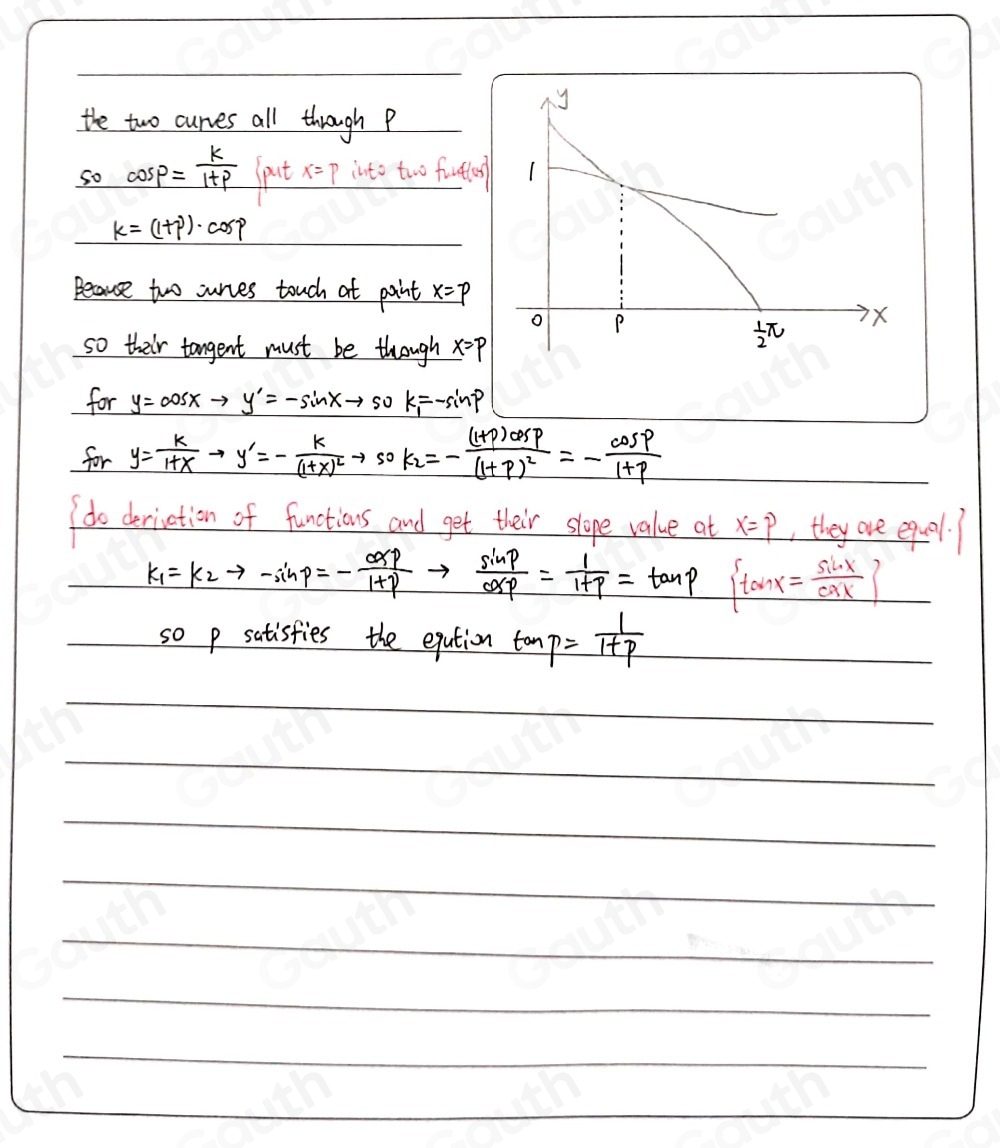 the two curves all through P
so cosp = k/(1+p) {put x=p into two
k = (1+p)·cosp
Because two curves touch at point x=p
so their tangent must be though x=p
for y=cosx → y′=-sinx → so k₁=-sinp
for y=k/(1+x) → y′=-k/(1+x)² → so k₂=-(1+p)cosp/(1+p)² = -cosp/(1+p)
{do derivation of functions and get their slope value at x=p, they are equal.}
k₁=k₂ → -sinp=-cosp/(1+p) → sinp/cosp = 1/(1+p) = tanp {tanx = sinx/cosx}
so p satisfies the eqution tanp = 1/(1+p)
y
1
0 P ½π x
Gauth